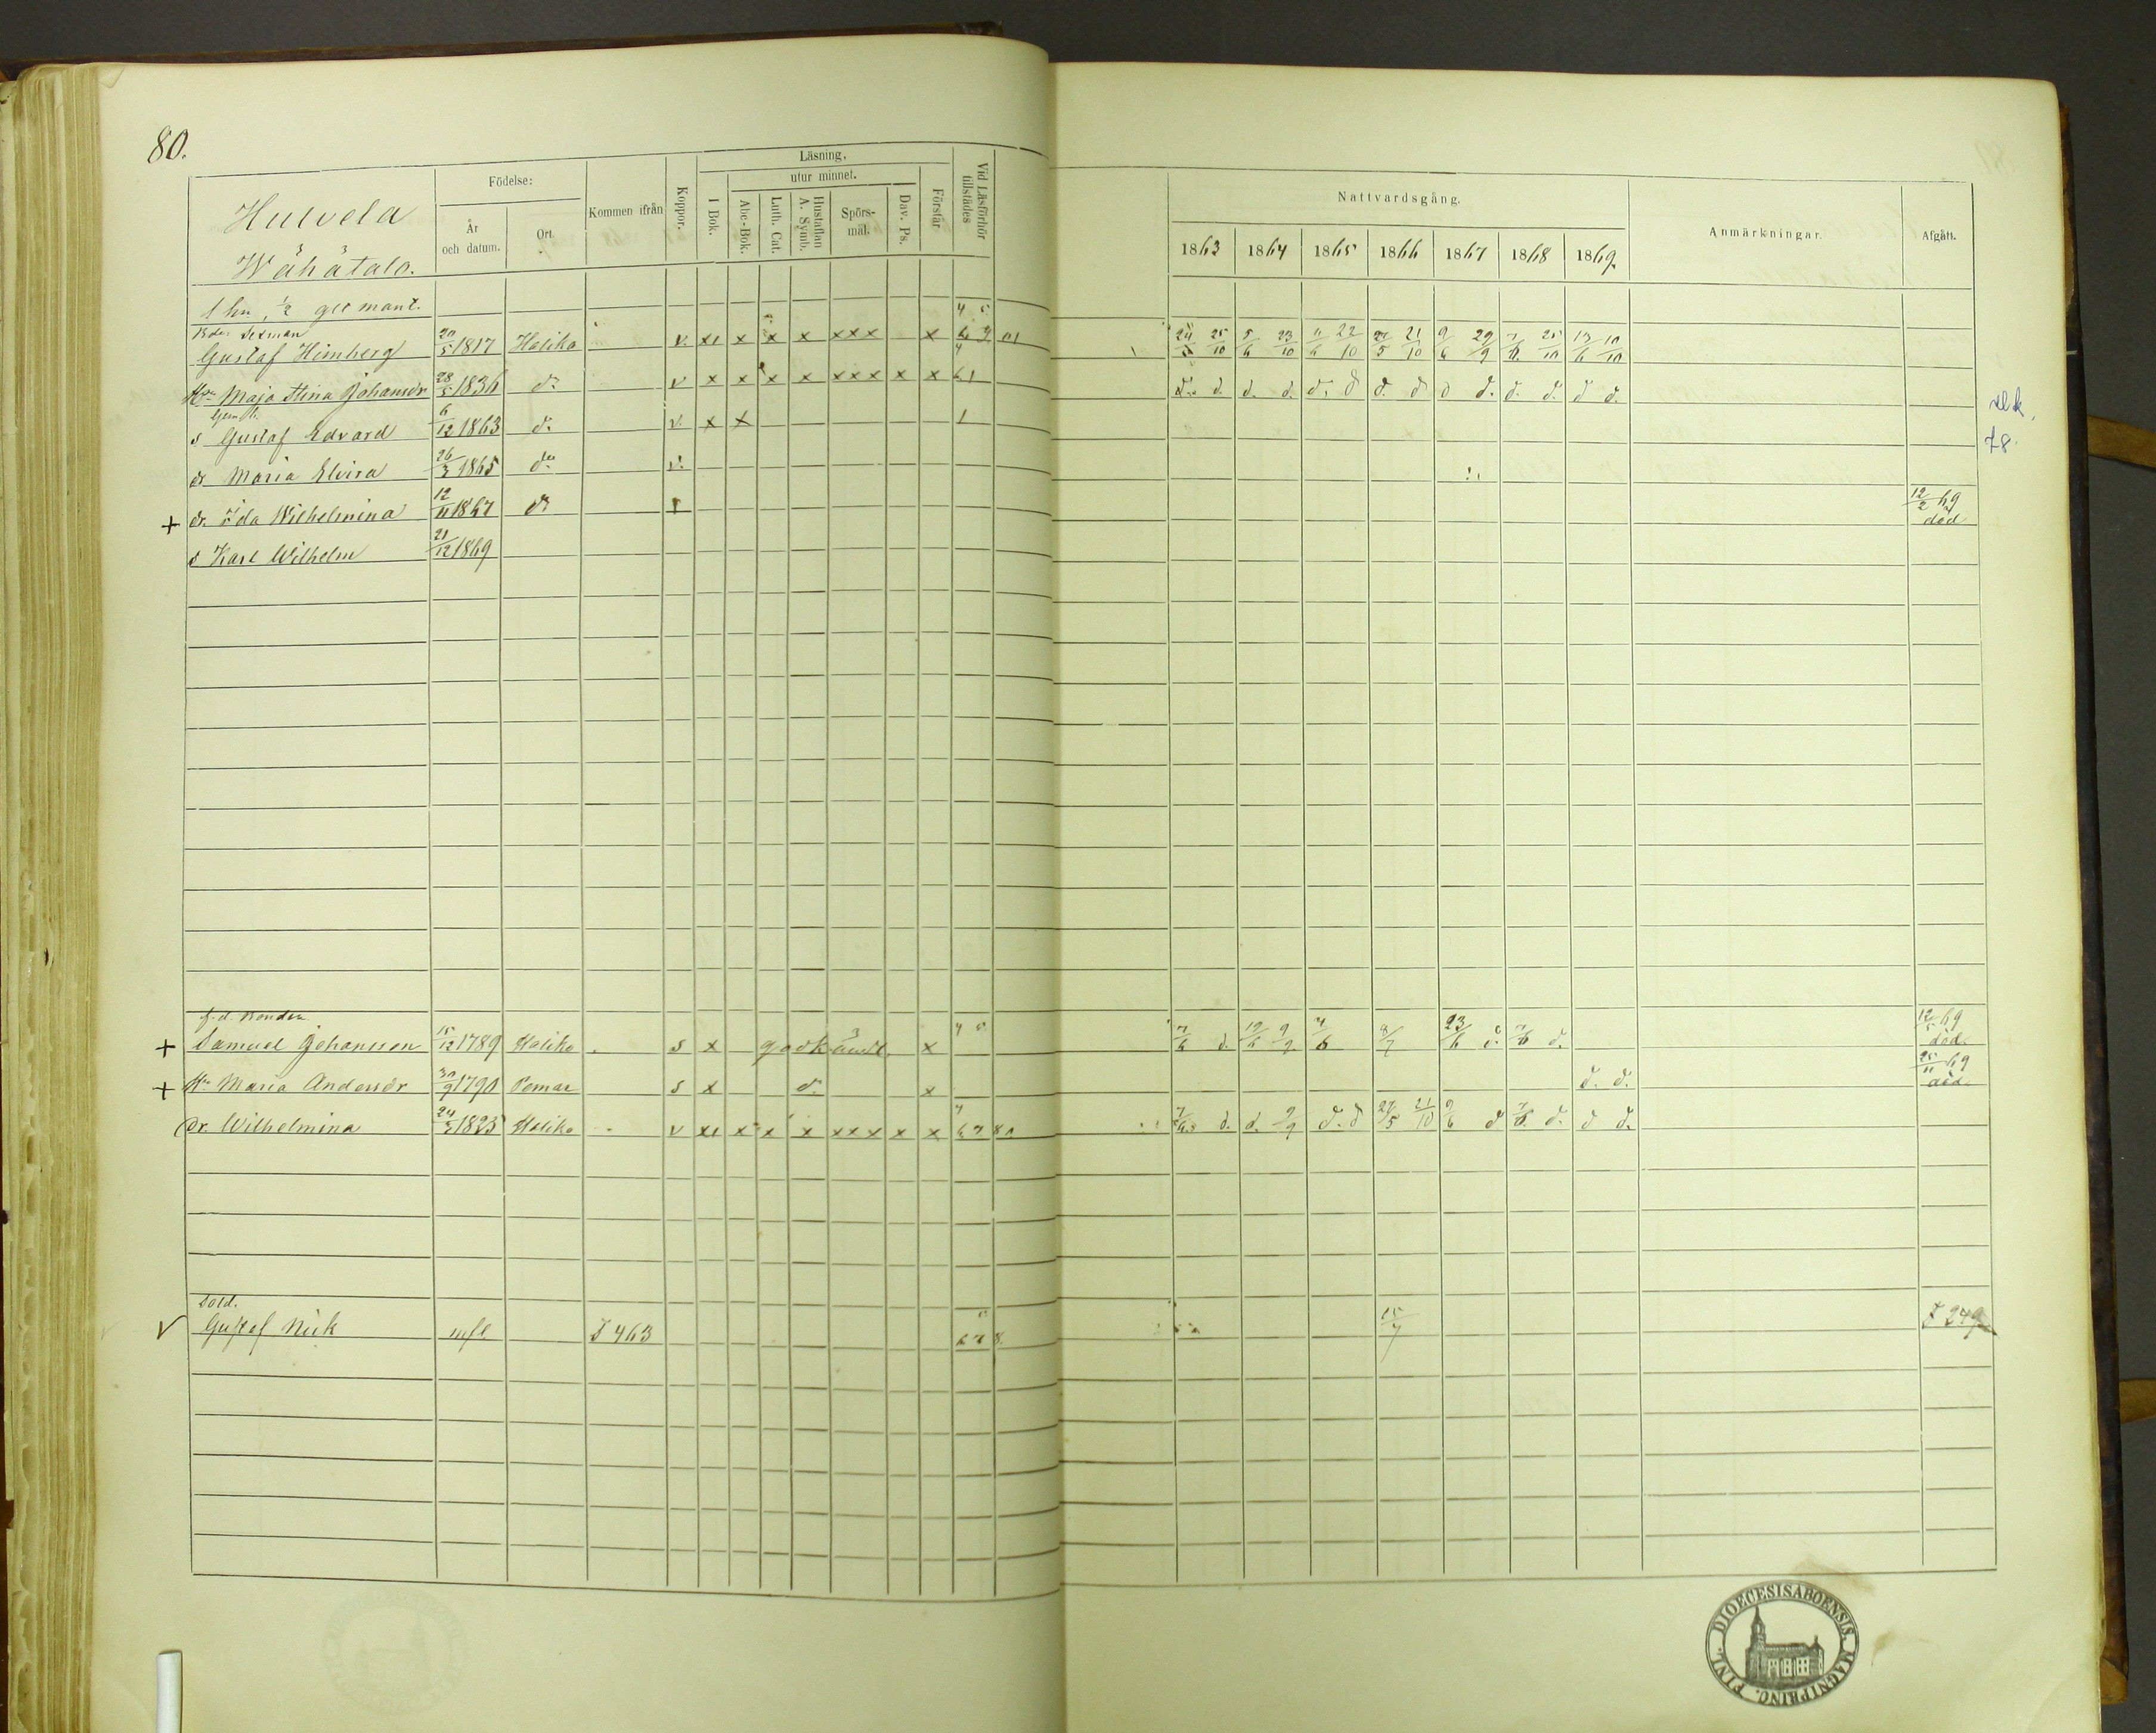 80.
Hulvela
Wähätalo.
Födelse:
År och datum.
Ort.
Kommen ifrån
Koppor.
Läsning.
I Bok.
utur minnet.
Abc-Bok.
Luth. Cat.
Hustaflan A. Symb.
Spörs-mål.
Dav. Ps.
Förstår
Vid Läsförhör tillstädes
Nattvardsgång.
1863 1864 1865 1866 1867 1868 1869.
Anmärkningar.
Afgått.
1 hn, 1/2 mant.
Bde. Sexman
Gustaf Himberg 20/5 1817 Haliko v. xx x x x xxx x 24/5 25/10 5/6 23/10 22/10 27/5 21/10 9/6 29/9 25/10 13/6 10/10
Hu Maja Stina Johansdr 28/5 1836 do v x x x x xxx x x 61 d. d. d. d. d. d d. d d d. d. d. d d.
s Gustaf Edvard 6/12 1863 do v. x x 1
dr Maria Elvira 26/3 1865 do v.
+ dr. Ida Wilhelmina 12/11 1867 do 12/2 69 död
s Karl Wilhelm 21/12 1869
78.
f.d. Bonden
+ Samuel Johansson 15/12 1789 Haliko s x godkändt. x 7/6 d. 8/7 23/6 d. d. 12/5 69 död.
+ Hu Maria Andersdr 30/9 1790 Pemar s x do x d. d. 25/11 69 död.
dr. Wilhelmina 24/3 1825 Haliko v xx x x x xxx x x 7/6 d. d. 9/9 d. d 27/5 21/10 9/6 d d. d d.
Sold.
v Gustaf Nick mfl I 463 15/7 I 249
DIOECESIS ABOENSIS. MAGNI PRINC. FINL.